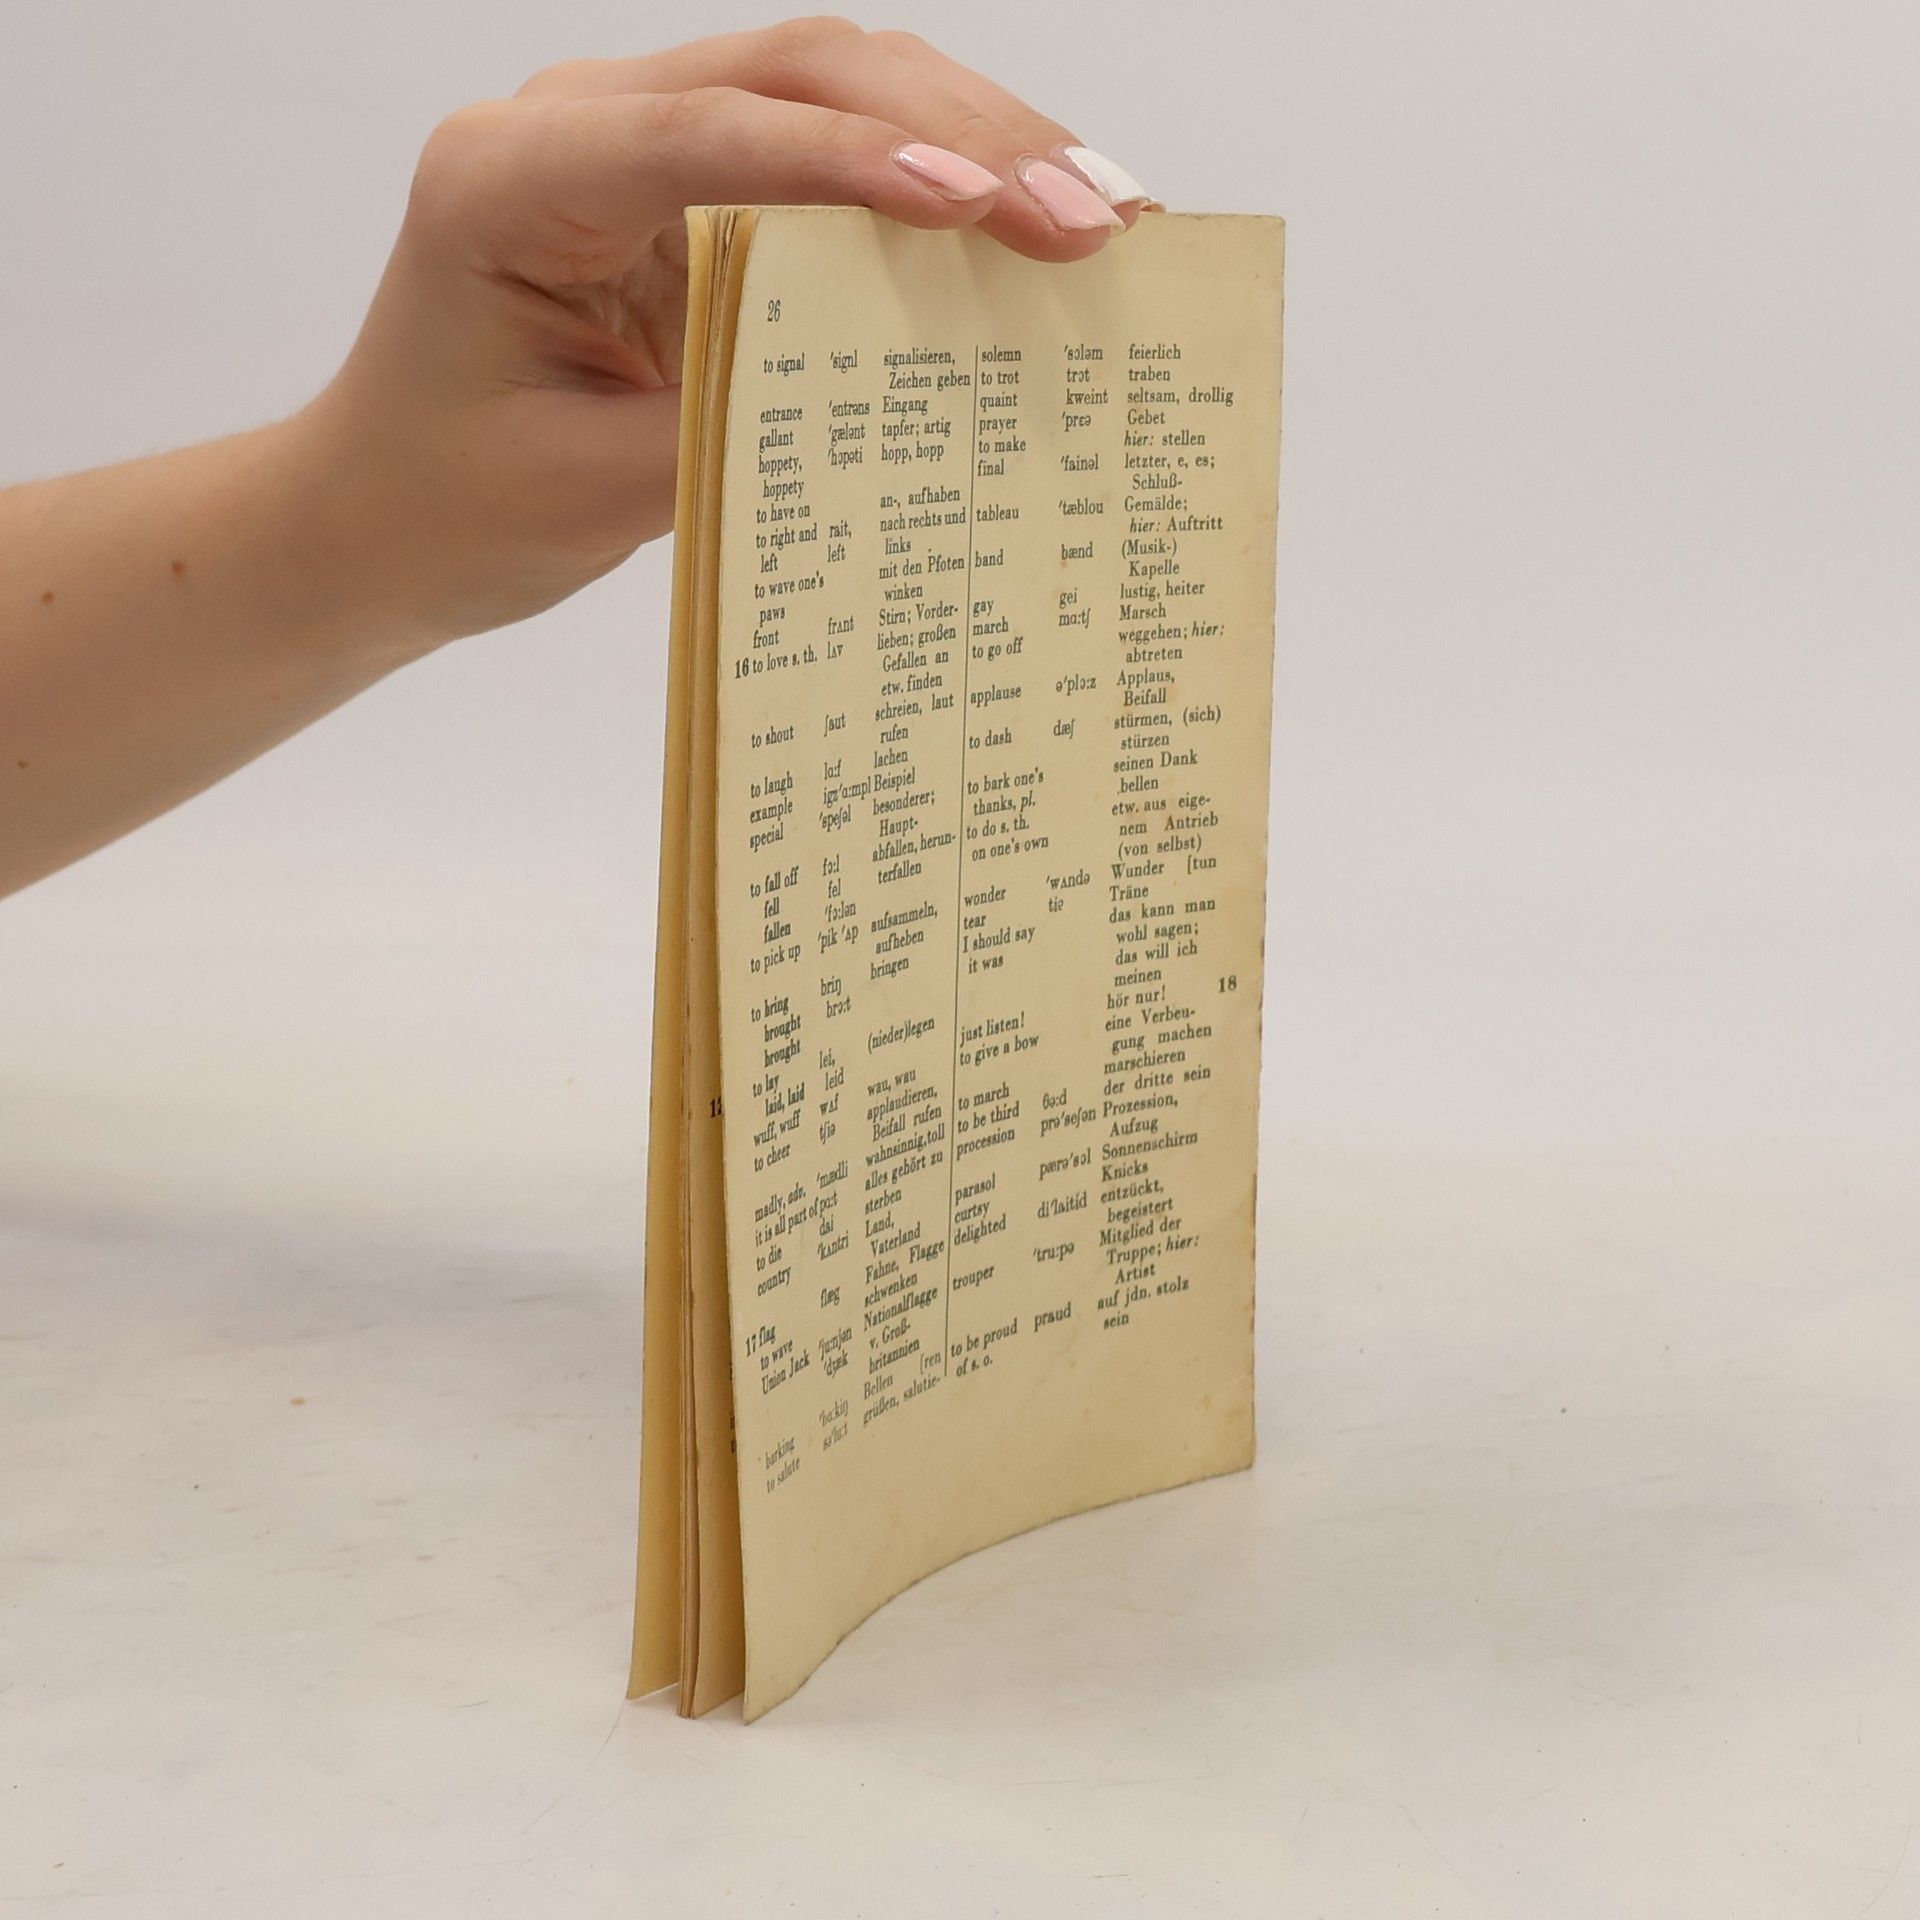 26
to signal 'signl signalisieren,
Zeichen geben
entrance 'entrəns Eingang
gallant 'gælənt tapfer; artig
hoppety, 'hɔpəti hopp, hopp
hoppety
to have on an-, aufhaben
to right and rait, nach rechts und
left left links
to wave one's mit den Pfoten
paws winken
front frʌnt Stirn; Vorder-
16 to love s. th. lʌv lieben; großen
Gefallen an
etw. finden
to shout ʃaut schreien, laut
rufen
to laugh lɑ:f lachen
example igz'ɑ:mpl Beispiel
special 'speʃəl besonderer;
Haupt-
to fall off fɔ:l abfallen, herun-
fell fel terfallen
fallen 'fɔ:lən
to pick up 'pik 'ʌp aufsammeln,
aufheben
to bring briŋ bringen
brought brɔ:t
brought
to lay lei, (nieder)legen
laid, laid leid
wuff, wuff wʌf wau, wau
to cheer tʃiə applaudieren,
Beifall rufen
madly, adv. 'mædli wahnsinnig, toll
it is all part of pɑ:t alles gehört zu
to die dai sterben
country 'kʌntri Land,
Vaterland
17 flag flæg Fahne, Flagge
to wave schwenken
Union Jack 'ju:njən Nationalflagge
'dʒæk v. Groß-
britannien
barking 'bɑ:kiŋ Bellen [ren
to salute sə'lu:t grüßen, salutie-
solemn 'sɔləm feierlich
to trot trɔt traben
quaint kweint seltsam, drollig
prayer 'prɛə Gebet
to make hier: stellen
final 'fainəl letzter, e, es;
Schluß-
tableau 'tæblou Gemälde;
hier: Auftritt
band bænd (Musik-)
Kapelle
gay gei lustig, heiter
march mɑ:tʃ Marsch
to go off weggehen; hier:
abtreten
applause ə'plɔ:z Applaus,
Beifall
to dash dæʃ stürmen, (sich)
stürzen
to bark one's seinen Dank
thanks, pl. bellen
to do s. th. etw. aus eige-
on one's own nem Antrieb
(von selbst)
wonder 'wʌndə Wunder [tun
tear tiə Träne
I should say das kann man
it was wohl sagen;
das will ich
meinen
just listen! hör nur! 18
to give a bow eine Verbeu-
gung machen
to march marschieren
to be third θə:d der dritte sein
procession prə'seʃən Prozession,
Aufzug
parasol pærə'sɔl Sonnenschirm
curtsy Knicks
delighted di'laitid entzückt,
begeistert
trouper 'tru:pə Mitglied der
Truppe; hier:
Artist
to be proud praud auf jdn. stolz
of s. o. sein